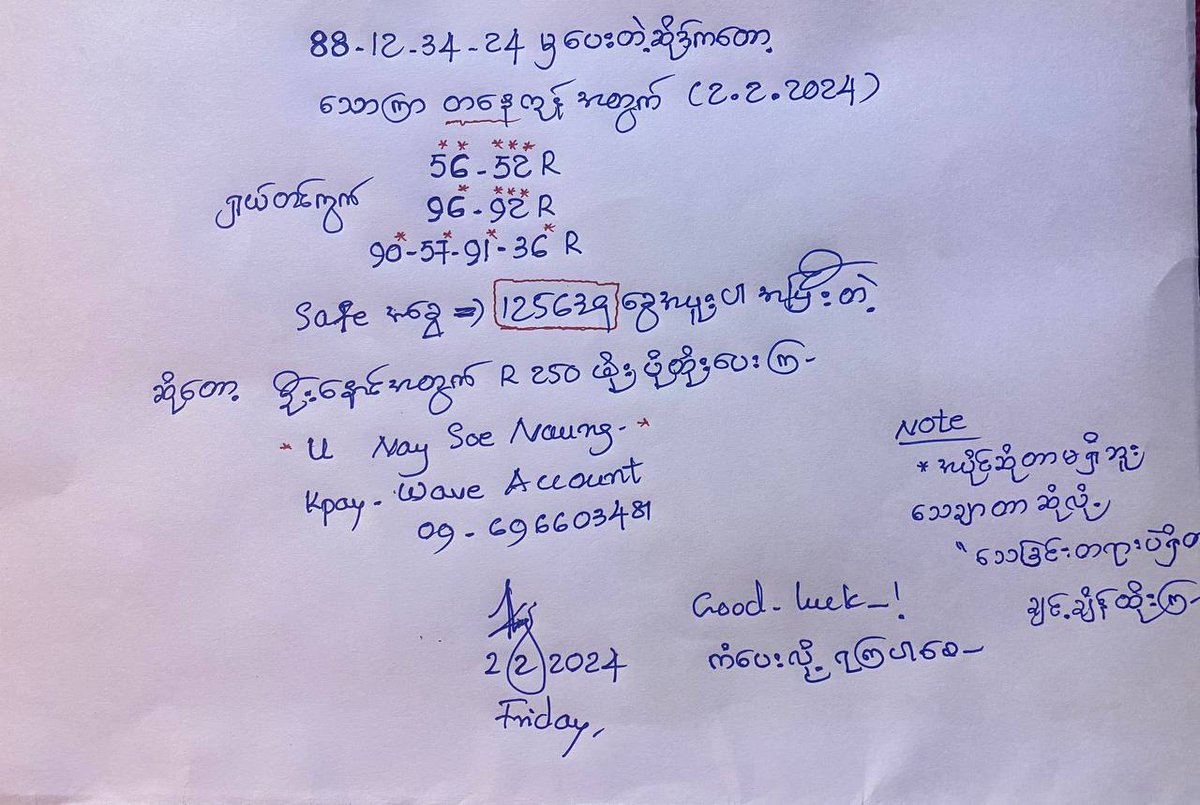 88-12-34-24 မှ ပေးတဲ့ဆိုဒ်ကတော့
သောကြာ တနေကုန် အတွက် (2.2.2024)
** ***
56-52 R
* ***
ရှယ်တင်ကွက် 96-92 R
* * * *
90-57-91-36 R
Safe အခွေ => 125639 ခွေအပူးပါ အပြီးတဲ့
ဆိုတော့ ဦးနောင်အတွက် R 250 ဖိုး ပိုထိုးပေးကြ-
* U Nay Soe Naung- *
Kpay - Wave Account
09 - 696603481
Note
* အပိုင်ဆိုတာမရှိဘူး
သေချာတာ ဆိုလို့
"သေခြင်းတရားပဲရှိတ
ချင့်ချိန်ထိုးကြ-
Good - luck -!
ကံပေးလို့ ရကြပါစေ-
2 2 2024
Friday,